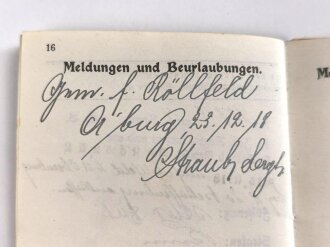 16
Meldungen und Beurlaubungen.
Gem. f. Röllfeld
A'burg 23.12.18
Straub
M